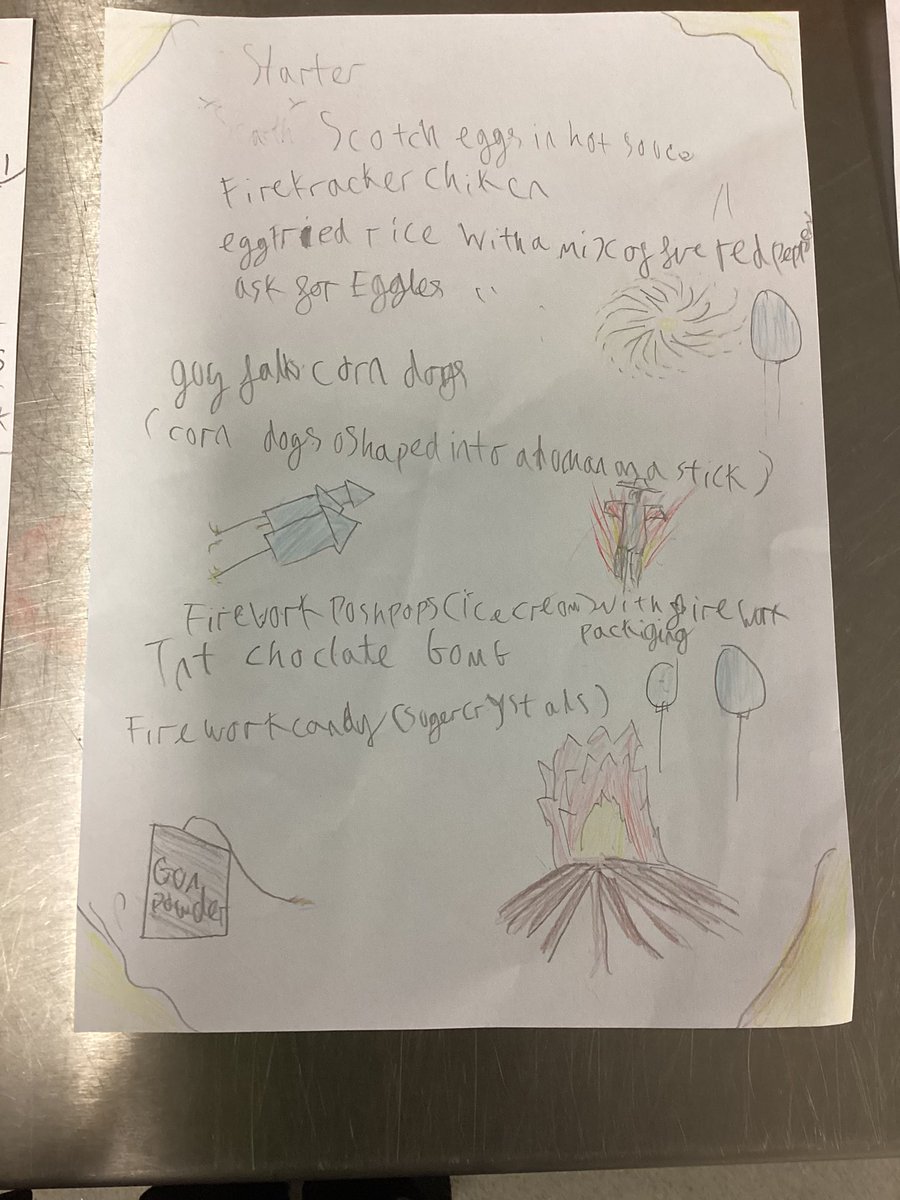 Starter
Scotch eggs in hot souce
Firekracker chiken
eggfried rice with a mix of five red pepper
ask for Eggles
guy falks corn dogs
(corn dogs shaped into a human on a stick)
Firework Poshpops (icecream) with firework
packiging
Tnt choclate bomb
Firework candy (sugercrystals)
Gon
powder